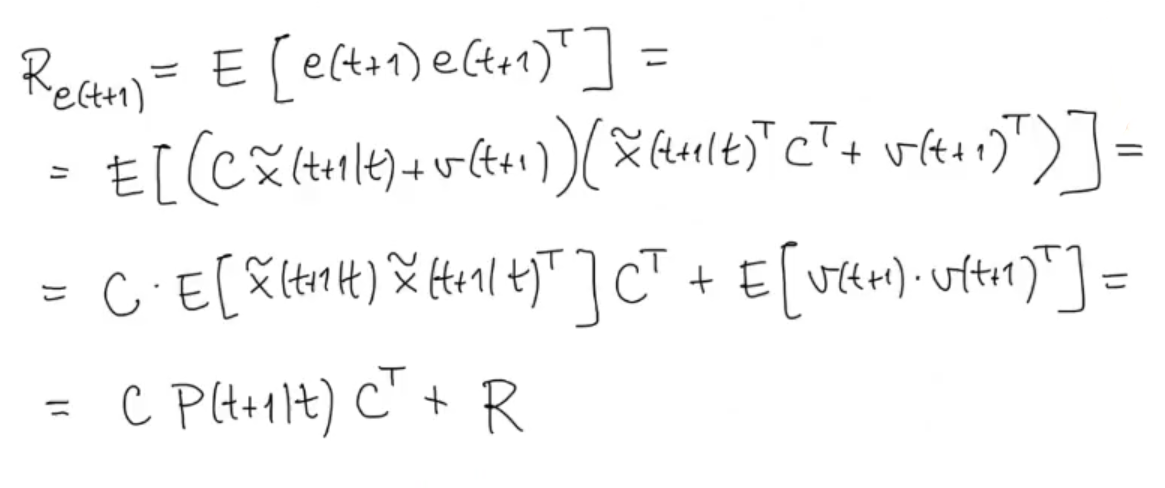 R_{e(t+1)} = E [ e(t+1) e(t+1)^T ] =
= E [ ( C x̃(t+1|t) + v(t+1) ) ( x̃(t+1|t)^T C^T + v(t+1)^T ) ] =
= C · E [ x̃(t+1|t) x̃(t+1|t)^T ] C^T + E [ v(t+1) · v(t+1)^T ] =
= C P(t+1|t) C^T + R